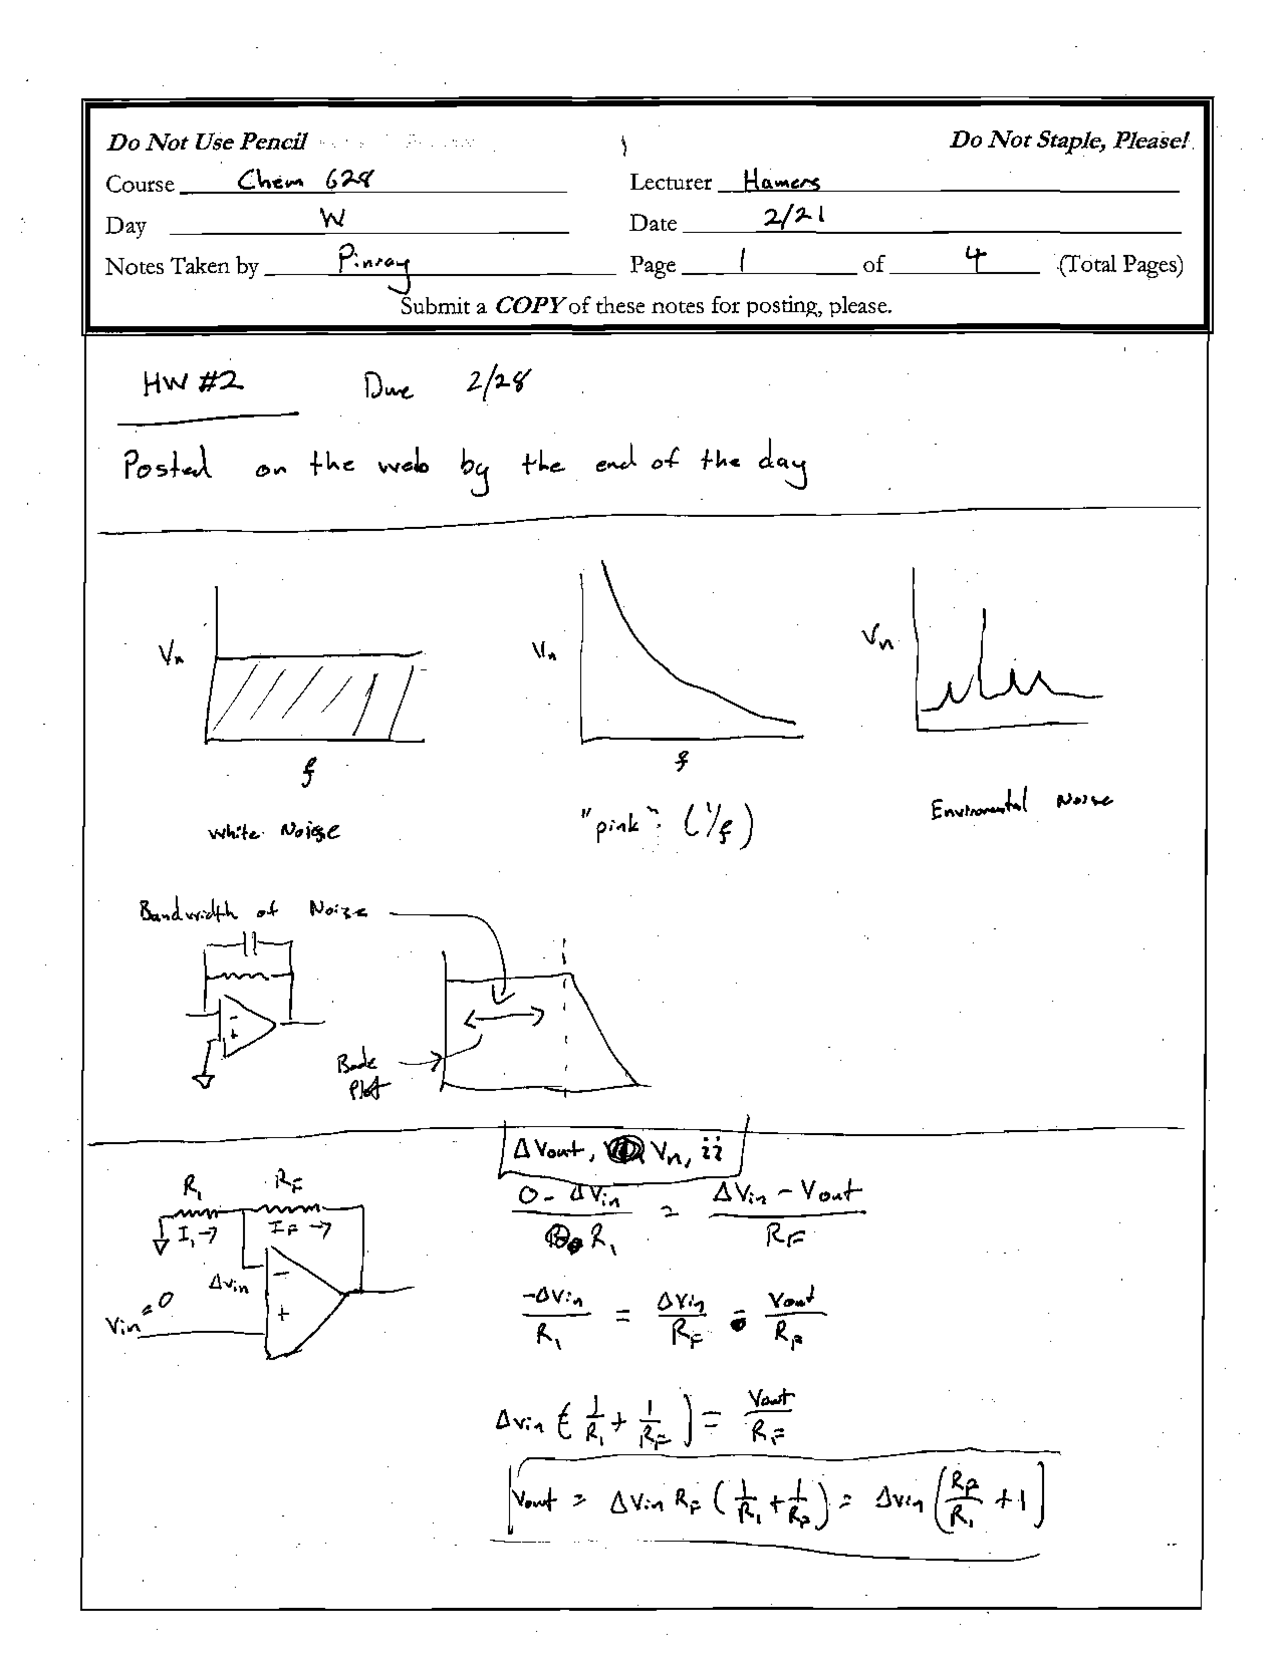 Do Not Use Pencil Do Not Staple, Please!
Course Chem 628 Lecturer Hamers
Day W Date 2/21
Notes Taken by Pinray Page 1 of 4 (Total Pages)
Submit a COPY of these notes for posting, please.
HW #2 Due 2/28
Posted on the web by the end of the day
Vn Vn Vn
f f
White Noise "pink" (1/f) Enviromental Noise
Bandwidth of Noise
- +
Bode Plot
ΔVout, Vn, ii
R1 RF
I1 → IF →
ΔVin
- +
Vin = 0
(0 - ΔVin)/R1 = (ΔVin - Vout)/RF
-ΔVin/R1 = ΔVin/RF - Vout/RF
ΔVin (1/R1 + 1/RF) = Vout/RF
Vout = ΔVin RF (1/R1 + 1/RF) = ΔVin (RF/R1 + 1)